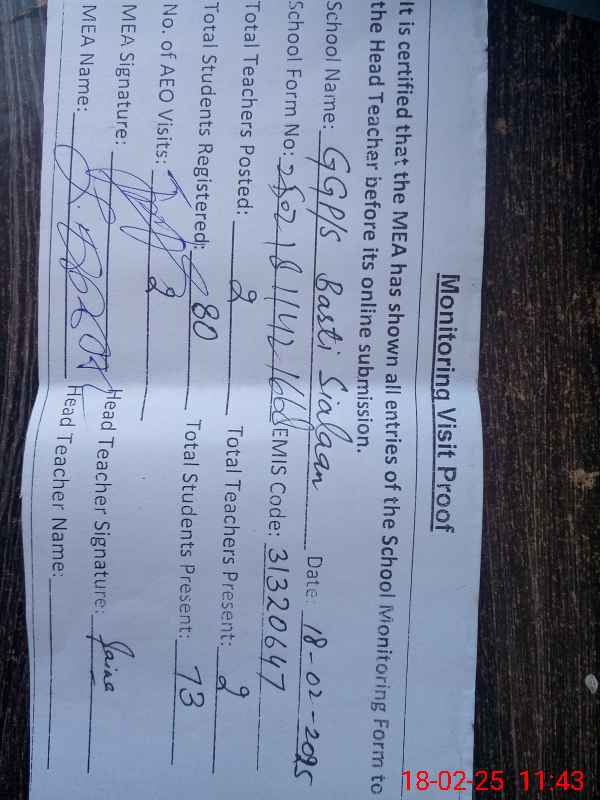 Monitoring Visit Proof
It is certified that the MEA has shown all entries of the School Monitoring Form to
the Head Teacher before its online submission.
School Name: GGP/S Basti Sialaan Date: 18-02-2025
School Form No: EMIS Code: 31320647
Total Teachers Posted: 2 Total Teachers Present: 2
Total Students Registered: 80 Total Students Present: 73
No. of AEO Visits: 2
MEA Signature: Head Teacher Signature:
MEA Name: Head Teacher Name:
18-02-25 11:43